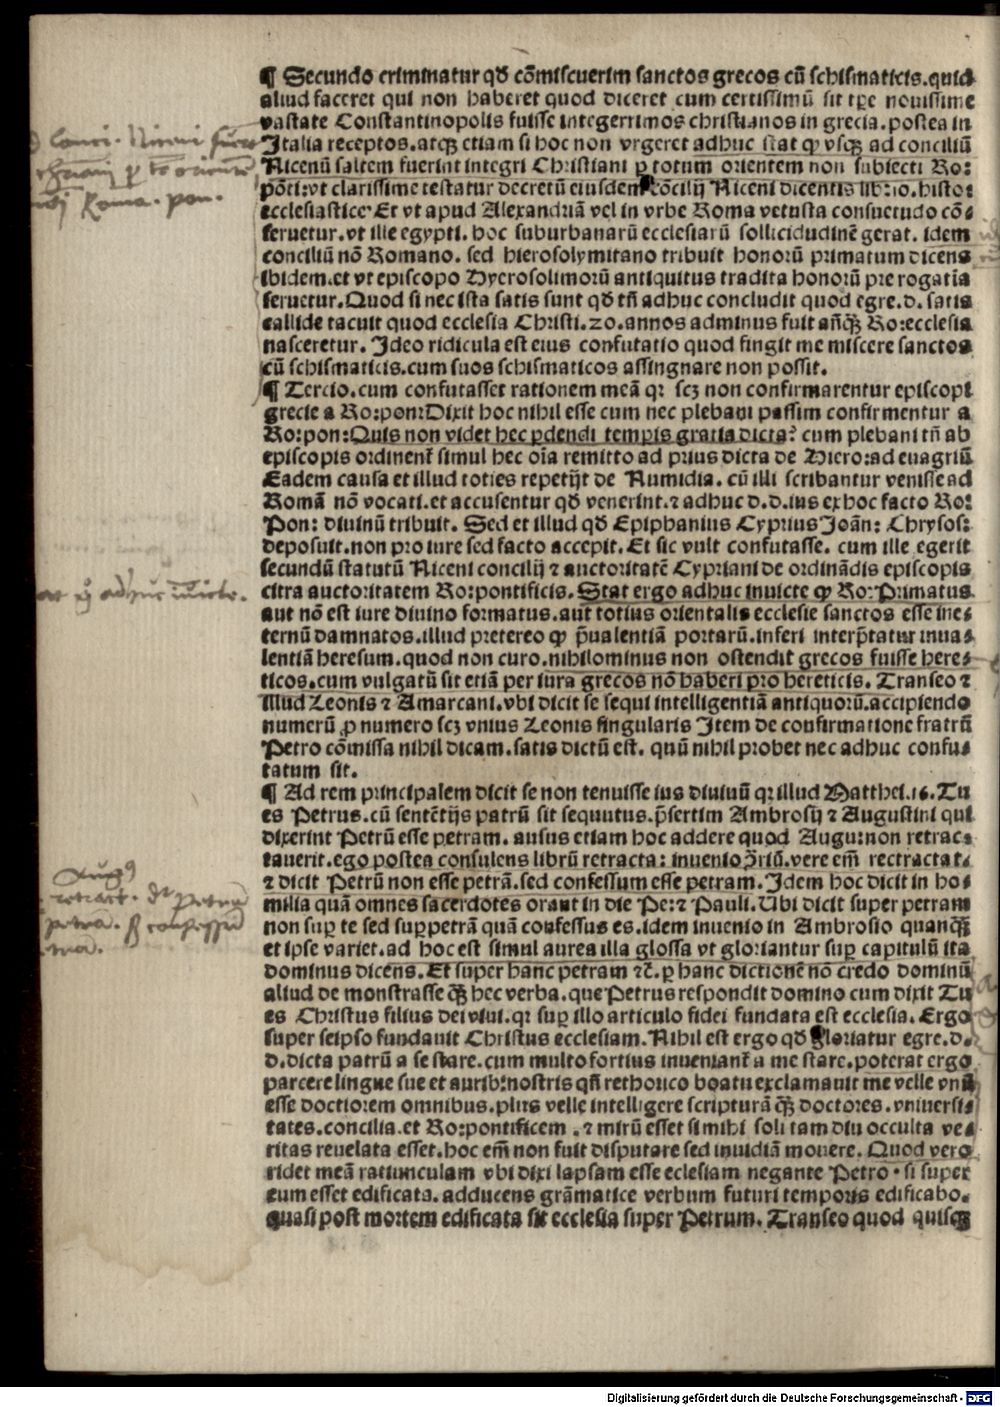 ¶ Secundo criminatur qđ cōmiscuerim sanctos grecos cū schismaticis.quid
aliud faceret qui non haberet quod diceret cum certissimū sit tp̄e nouissime
vastate Constantinopolis fuisse integerrimos christianos in grecia.postea in
Italia receptos.atqꝫ etiam si hoc non vrgeret adhuc stat ꝙ vsqꝫ ad conciliū
Nicenū saltem fuerint integri Christiani ꝑ totum orientem non subiecti Ro:
pōti:vt clarissime testatur decretū eiusdem cōcilij Niceni dicentis lib:10.histo:
ecclesiastice Et vt apud Alexandriā vel in vrbe Roma vetusta consuetudo cō⸗
seruetur.vt ille egypti. hoc suburbanarū ecclesiarū sollicidudinē gerat. idem
conciliū nō Romano. sed hierosolymitano tribuit honorū primatum dicens
ibidem.et vt episcopo Hycrosolimorū antiquitus tradita honorū pre rogatia
seruetur.Quod si nec ista satis sunt qđ tn̄ adhuc concludit quod egre.d. satis
callide tacuit quod ecclesia Christi.20.annos adminus fuit an̄qꝫ Ro:ecclesia
nasceretur. Ideo ridicula est eius confutatio quod fingit me miscere sanctos
cū schismaticis.cum suos schismaticos assingnare non possit.
¶ Tercio.cum confutasset rationem meā qꝛ scꝫ non confirmarentur episcopi
grecie a Ro:pon:Dixit hoc nihil esse cum nec plebani passim confirmentur a
Ro:pon:Quis non videt hec ꝑdendi tempis gratia dicta? cum plebani tn̄ ab
episcopis ordinent̄ simul hec oīa remitto ad prius dicta de Hiero:ad euagriū
Eadem causa et illud toties repetijt de Numidia. cū illi scribantur venisse ad
Romā nō vocati.et accusentur qđ venerint.⁊ adhuc d.d.ius ex hoc facto Ro:
Pon: diuinū tribuit. Sed et illud qđ Epiphanius Cyprius Joān: Chrysos:
deposuit.non pro iure sed facto accepit. Et sic vult confutasse. cum ille egerit
secundū statutū Niceni concilij ⁊ auctoritatē Cypriani de ordinādis episcopis
citra auctoritatem Ro:pontificis. Stat ergo adhuc inuicte ꝙ Ro:Primatus
aut nō est iure diuino formatus.aut totius orientalis ecclesie sanctos esse ine⸗
ternū damnatos.illud pretereo ꝙ p̄ualentiā portarū.inferi interp̄tatur inua⸗
lentiā heresum.quod non curo.nihilominus non ostendit grecos fuisse here⸗
ticos.cum vulgatū sit etiā per iura grecos nō haberi pro hereticis. Transeo ⁊
illud Leonis ⁊ Amarcani.vbi dicit se sequi intelligentiā antiquorū.accipiendo
numerū ꝓ numero scꝫ vnius Leonis singularis Item de confirmatione fratrū
Petro cōmissa nihil dicam.satis dictū est. quū nihil probet nec adhuc confu⸗
tatum sit.
¶ Ad rem principalem dicit se non tenuisse ius diuinū qꝛ illud Matthei.16.Tu
es Petrus.cū sentētijs patrū sit sequutus.p̄sertim Ambrosij ⁊ Augustini qui
dixerint Petrū esse petram. ausus etiam hoc addere quod Augu:non retrac⸗
tauerit.ego postea consulens librū retracta: inuenio ꝯ̄riū.vere em̄ rectractat.
⁊ dicit Petrū non esse petrā.sed confessum esse petram. Idem hoc dicit in ho⸗
milia quā omnes sacerdotes orant in die Pe:⁊ Pauli. Ubi dicit super petram
non suꝑ te sed suꝑpetrā quā confessus es.idem inuenio in Ambrosio quanqꝫ
et ipse variet.ad hoc est simul aurea illa glossa vt glo:iantur suꝑ capitulū ita
dominus dicens. Et super hanc petram ⁊c̄.ꝑ hanc dictionē nō credo dominū
aliud de monstrasse qꝫ hec verba.que Petrus respondit domino cum dixit Tu
es Christus filius dei viui.qꝛ suꝑ illo articulo fidei fundata est ecclesia. Ergo
super seipso fundauit Christus ecclesiam. Nihil est ergo qđ gloriatur egre.d.
d.dicta patrū a se stare.cum multo fortius inueniant̄ a me stare.poterat ergo
parcere lingue sue et aurib:nostris qn̄ rethorico boatu exclamauit me velle vnū
esse doctiorem omnibus.plus velle intelligere scripturā qꝫ doctores.vniuersi⸗
tates.concilia.et Ro:pontificem . ⁊ mirū esset si mihi soli tam diu occulta ve⸗
ritas reuelata esset.hoc em̄ non fuit disputare sed inuidiā mouere. Quod vero
ridet meā ratiunculam vbi dixi lapsam esse eclesiam negante Petro · si super
eum esset edificata. adducens grāmatice verbum futuri temporis edificabo.
quasi post mortem edificata sit ecclesia super Petrum. Transeo quod quisqꝫ
Digitalisierung gefördert durch die Deutsche Forschungsgemeinschaft - DFG